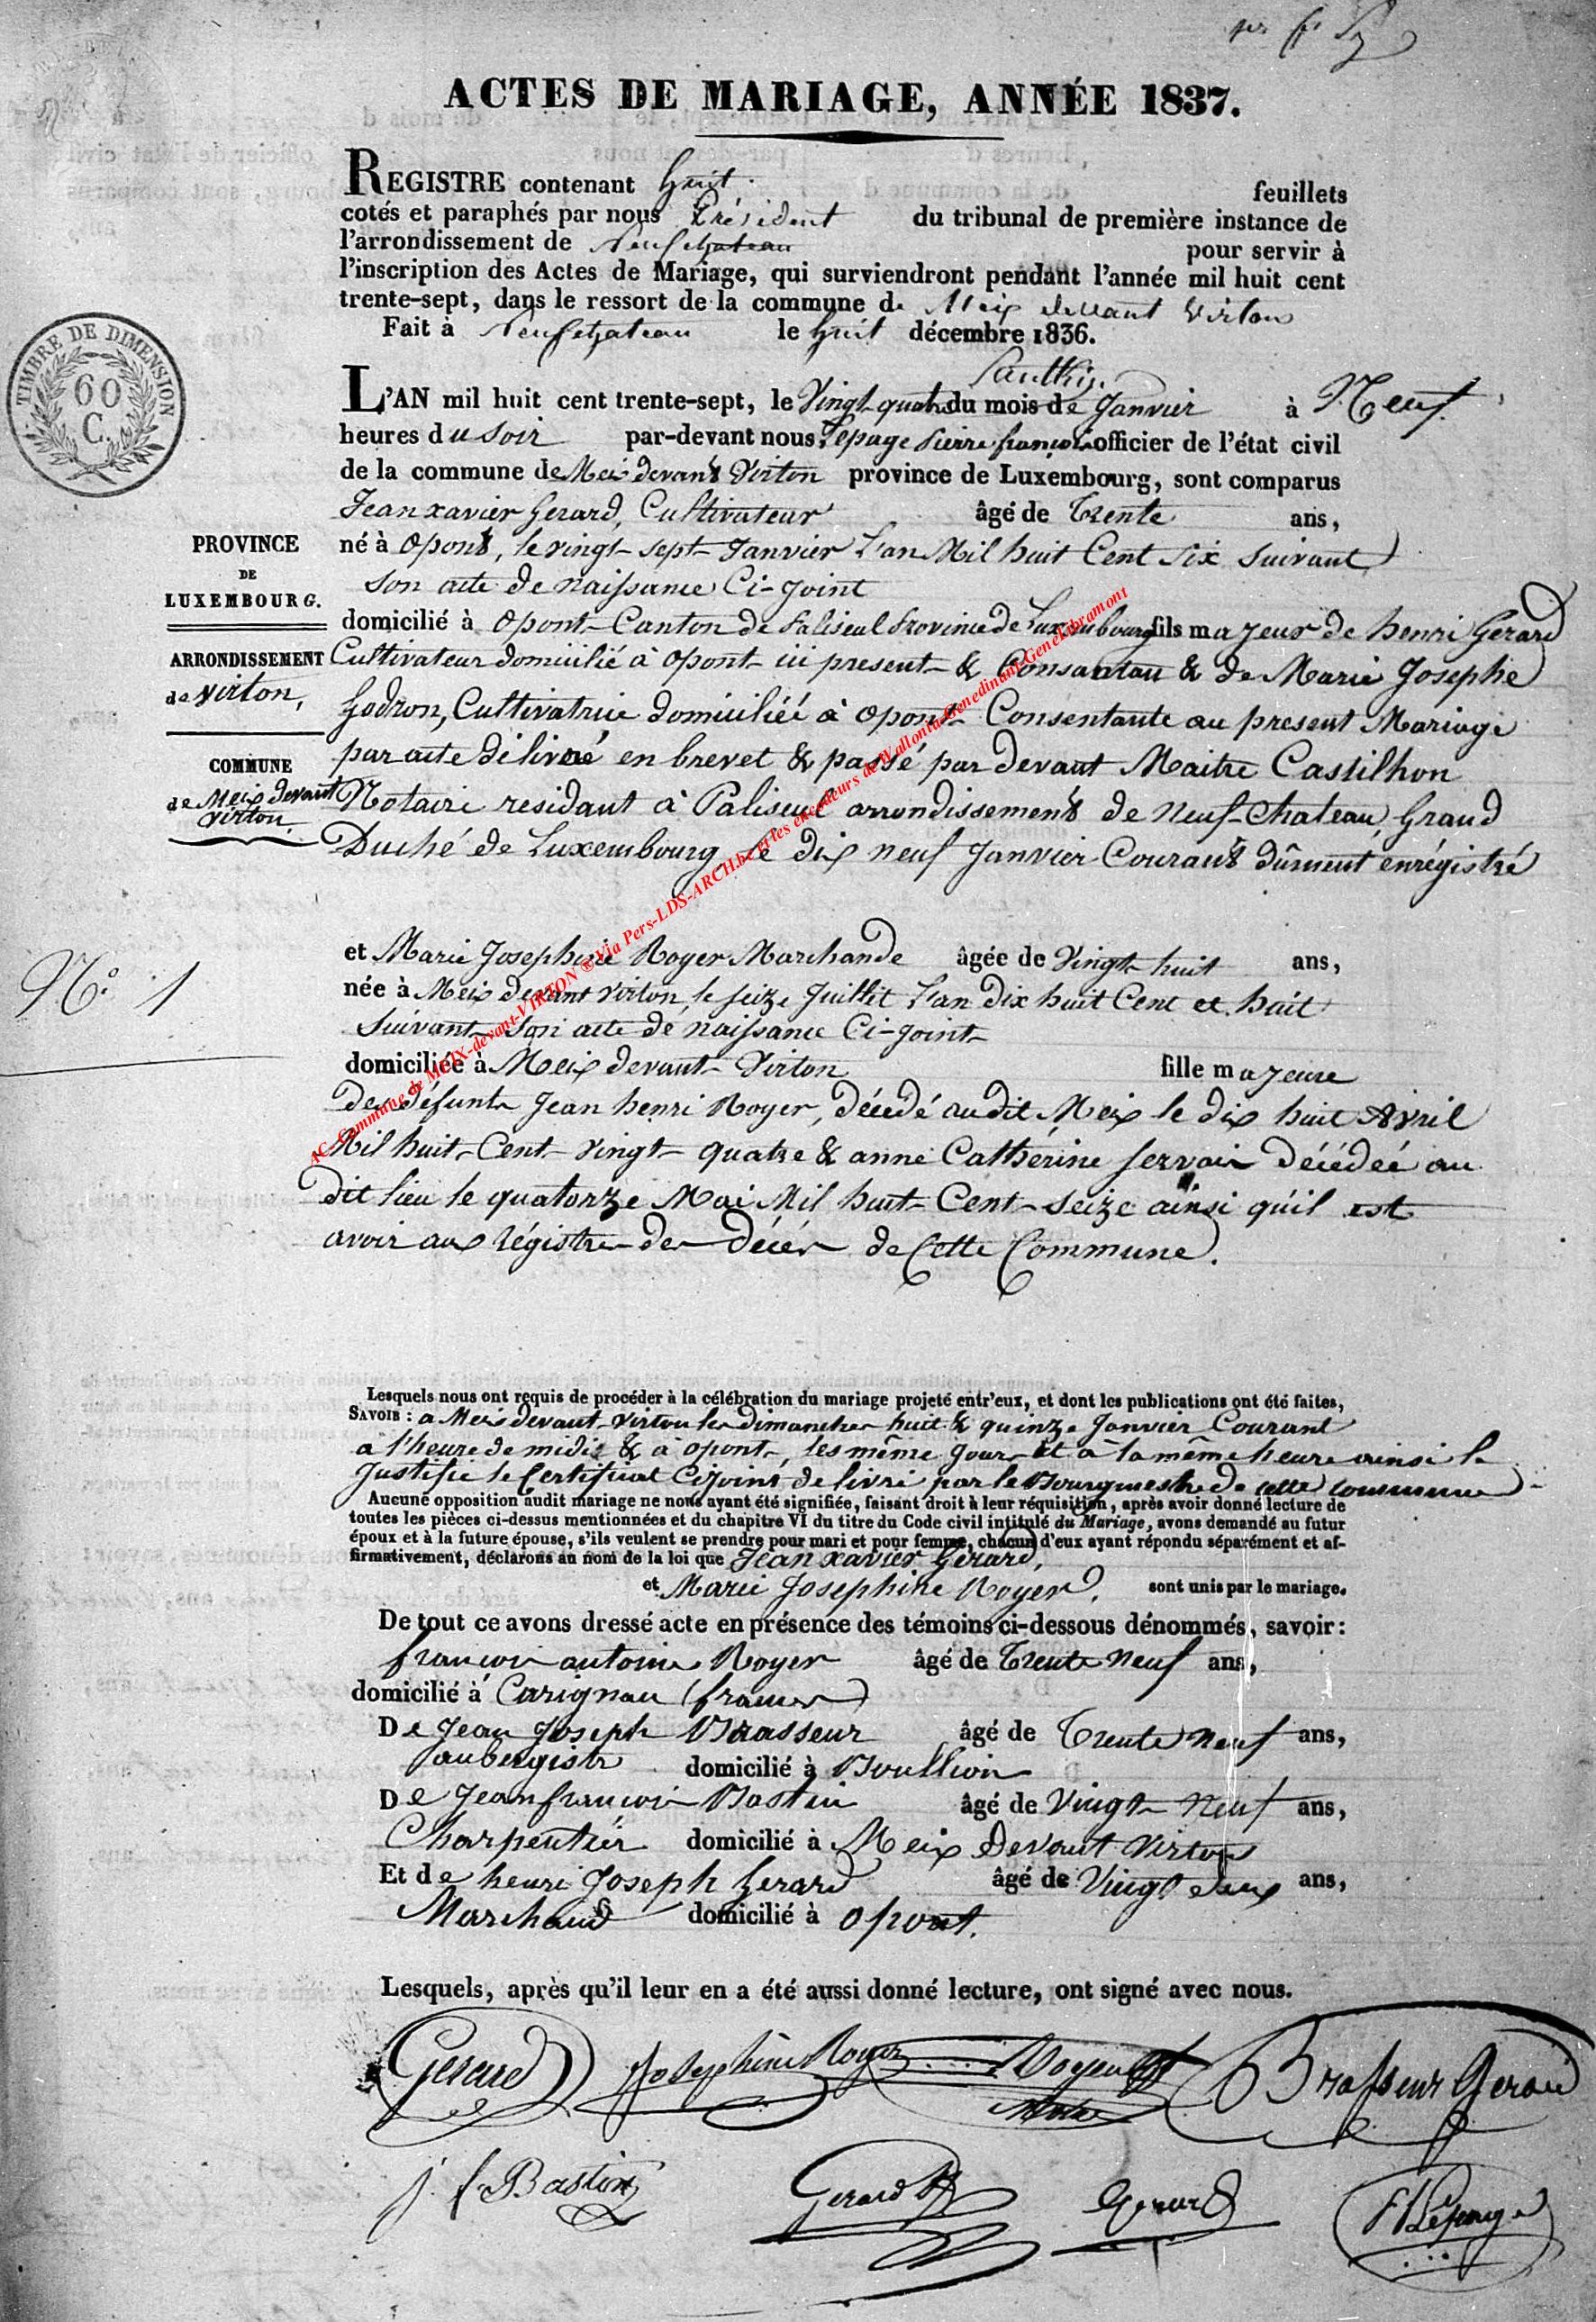 ACTES DE MARIAGE, ANNÉE 1837.
REGISTRE contenant huit feuillets
cotés et paraphés par nous Président du tribunal de première instance de
l'arrondissement de Neufchateau pour servir à
l'inscription des Actes de Mariage, qui surviendront pendant l'année mil huit cent
trente-sept, dans le ressort de la commune de Meix devant Virton
Fait à Neufchateau le huit décembre 1836.
TIMBRE DE DIMENSION
60
C.
L'AN mil huit cent trente-sept, le Vingt quatre du mois de Janvier à Neuf
heures du soir par-devant nous Lepage Pierre françois officier de l'état civil
de la commune de Meix devant Virton province de Luxembourg, sont comparus
Jean xavier Gerard, Cultivateur âgé de Trente ans,
né à Opont, le vingt sept Janvier L'an Mil huit Cent Six suivant
son acte de naissance Ci-joint
domicilié à Opont Canton de Paliseul Province de Luxembourg fils majeur de henri Gerard
Cultivateur domicilié à Opont ici present & Consantau & de Marie Josephe
Godron, Cultivatrice domiciliéé à Opont Consentante au present Mariage
par acte délivré en brevet & passé par devant Maitre Castilhon
Notaire residant à Paliseul arrondissement de Neuf-Chateau, Grand
Duché de Luxembourg le dix neuf Janvier Courant dûment enrégistré
PROVINCE
DE
LUXEMBOURG.
ARRONDISSEMENT
de Virton,
COMMUNE
de Meix devant
Virton.
N.° 1
et Marie Josephine Royer Marchande âgée de Vingt huit ans,
née à Meix devant Virton, le seize Juillet L'an Dix huit Cent et huit
suivant son acte de naissance Ci-joint
domiciliée à Meix devant Virton fille majeure
des défunts Jean henri Royer, décédé audit Meix le dix huit Avril
Mil huit Cent vingt quatre & anne Cathérine Servais décédéé au
dit lieu le quatorze Mai Mil huit Cent seize ainsi qu'il est
avoir aux régistres des décés de Cette Commune.
AC-Commune de MEIX-devant-VIRTON ® Via Pers-LDS-ARCH.be et les encodeurs de Wallonia-Genedinant-Genelibramont
Lesquels nous ont requis de procéder à la célébration du mariage projeté entr'eux, et dont les publications ont été faites,
SAVOIR : a Meix devant Virton les dimanches huit & quinze Janvier Courant
a l'heure de midi & à opont, les même jours et à la même heure ainsi le
Justifie le Certificat Cijoint délivré par le Bourgmestre de cette commune
Aucune opposition audit mariage ne nous ayant été signifiée, faisant droit à leur réquisition, après avoir donné lecture de
toutes les pièces ci-dessus mentionnées et du chapitre VI du titre du Code civil intitulé du Mariage, avons demandé au futur
époux et à la future épouse, s'ils veulent se prendre pour mari et pour femme, chacun d'eux ayant répondu séparément et af-
firmativement, déclarons au nom de la loi que Jean xavier Gérard,
et Marie Josephine Royer. sont unis par le mariage.
De tout ce avons dressé acte en présence des témoins ci-dessous dénommés, savoir :
françois antoine Royer âgé de Trente neuf ans,
domicilié à Carignan (france)
De Jean Joseph Brasseur âgé de Trente neuf ans,
aubergiste domicilié à Bouillion
De Jean françois Bastin âgé de Vingt neuf ans,
Charpentier domicilié à Meix devant Virton
Et de henri Joseph Gerard âgé de Vingt deux ans,
Marchand domicilié à opont.
Lesquels, après qu'il leur en a été aussi donné lecture, ont signé avec nous.
Gerard Josephine Royer Royer Brasseur Gerard
j. f. Bastin Gerard Gerard Lepage